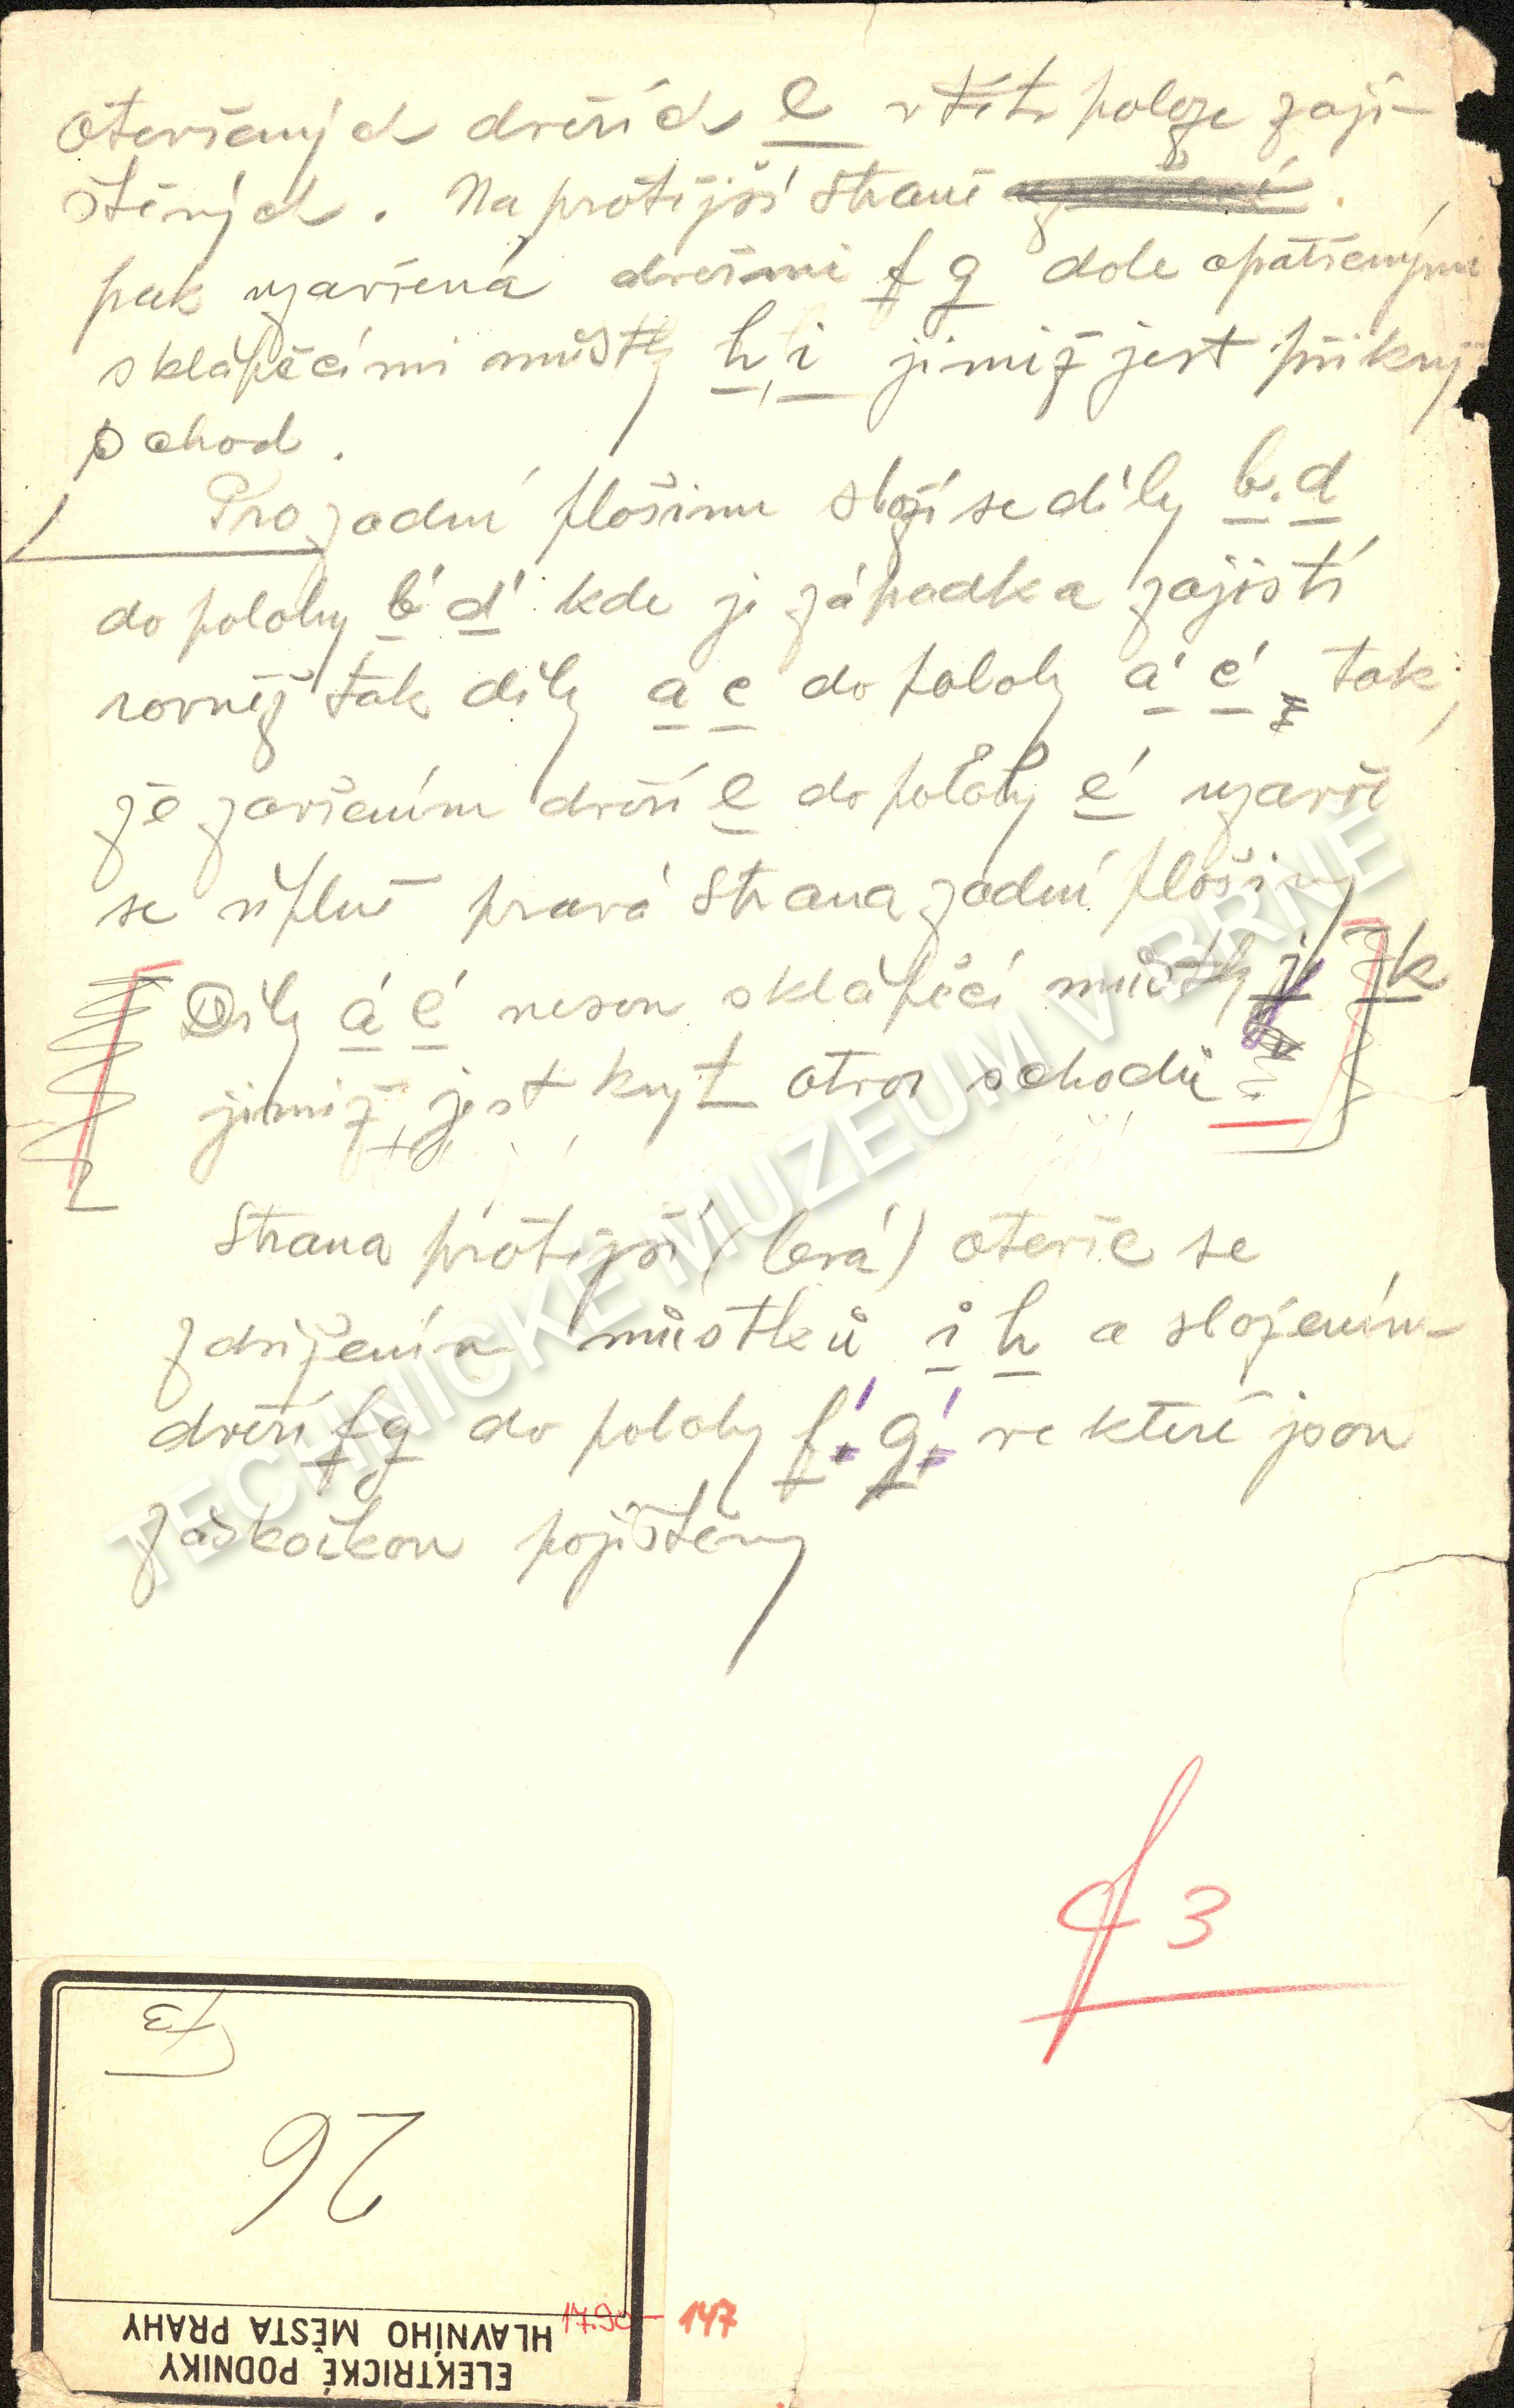 otevřených dveřích e v této poloze zaji-
štěných. Na protější straně
pak uzavřena dveřmi f g dole opatřenými
sklápěcími můstky h, i jimiž jest přikryt
schod.
Pro zadní plošinu složí se díly b. d
do polohy b' d' kde je západka zajistí
rovněž tak díly a c do polohy a' c' tak,
že zavřením dveří e do polohy e' uzavře
se úplně pravá strana zadní plošiny
Díly a' c' nesou sklápěcí můstky j k
jimiž jest kryt otvor schodů
Strana protější (levá) otevře se
zdvižením můstků i h a složením
dveří f g do polohy f' g' ve které jsou
zaskočkou pojištěny
f 3
f3
26
17.90 - 147
ELEKTRICKÉ PODNIKY
HLAVNÍHO MĚSTA PRAHY
TECHNICKÉ MUZEUM V BRNĚ